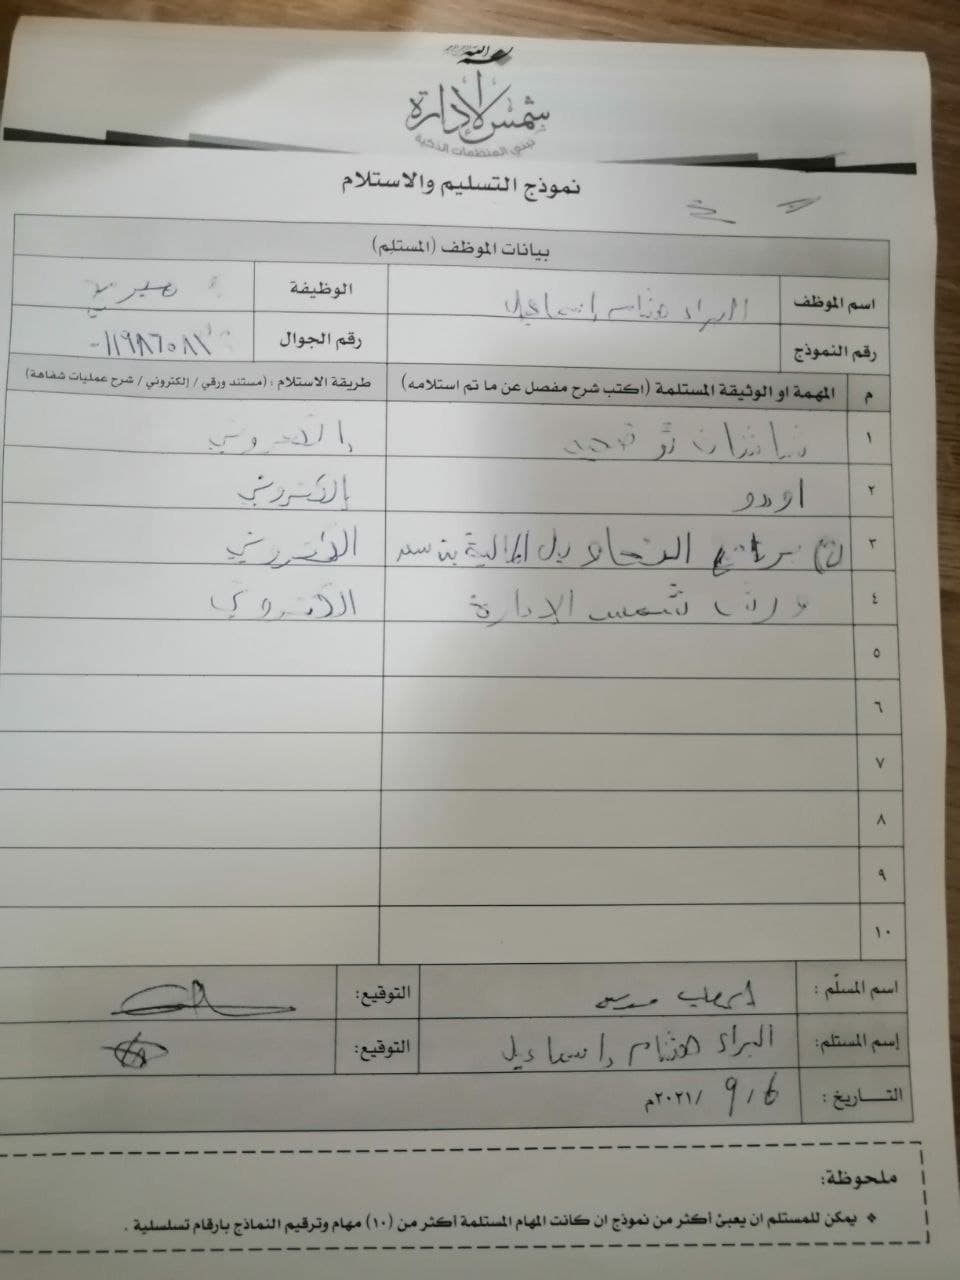 شمس الإدارة
نبني المنظمات الذكية
نموذج التسليم والاستلام
بيانات الموظف (المستلم)
اسم الموظف البراء هشام إسماعيل الوظيفة
رقم النموذج رقم الجوال
م المهمة او الوثيقة المستلمة (اكتب شرح مفصل عن ما تم استلامه) طريقة الاستلام : (مستند ورقي / إلكتروني / شرح عمليات شفاهة)
١ إلكتروني
٢ اودو إلكتروني
٣ برنامج المالية بن سعد الكتروني
٤ شمس الإدارة الكتروني
٥
٦
٧
٨
٩
١٠
اسم المسلّم : التوقيع:
إسم المستلم: البراء هشام إسماعيل التوقيع:
التـــاريخ : 6 / 9 /٢٠٢١م
ملحوظة:
❖ يمكن للمستلم ان يعبئ أكثر من نموذج ان كانت المهام المستلمة أكثر من (١٠) مهام وترقيم النماذج بارقام تسلسلية .